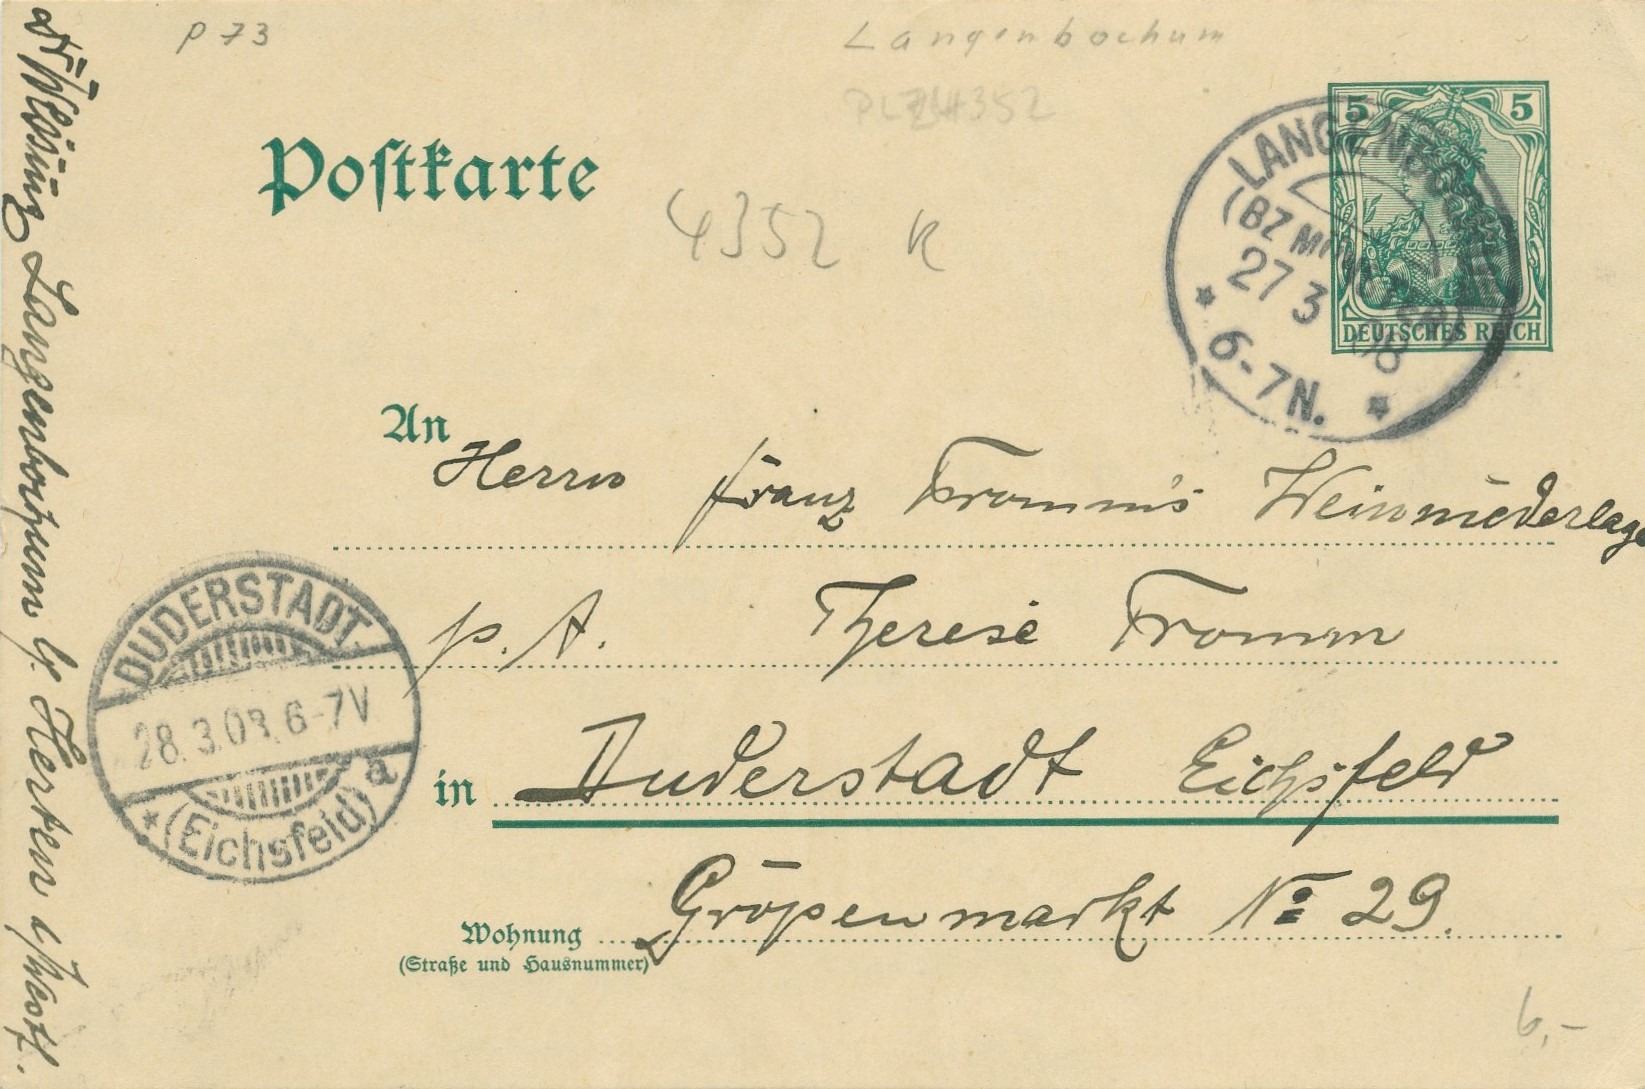 P 73
Langenbochum
PLZ 4352
Postkarte
4352 R
5 5
DEUTSCHES REICH
LANGENBOCHUM
(BZ MÜNSTER)
27 3 08
6-7N.
An
Herrn Franz Fromm's Weinniederlage
p. A. Therese Fromm
in Duderstadt Eichsfeld
Wohnung
(Straße und Hausnummer)
Gröpenmarkt No 29.
DUDERSTADT.
28.3.08.6-7V
a
(Eichsfeld)
Langenbochum b. Herten i/Westf.
6,-